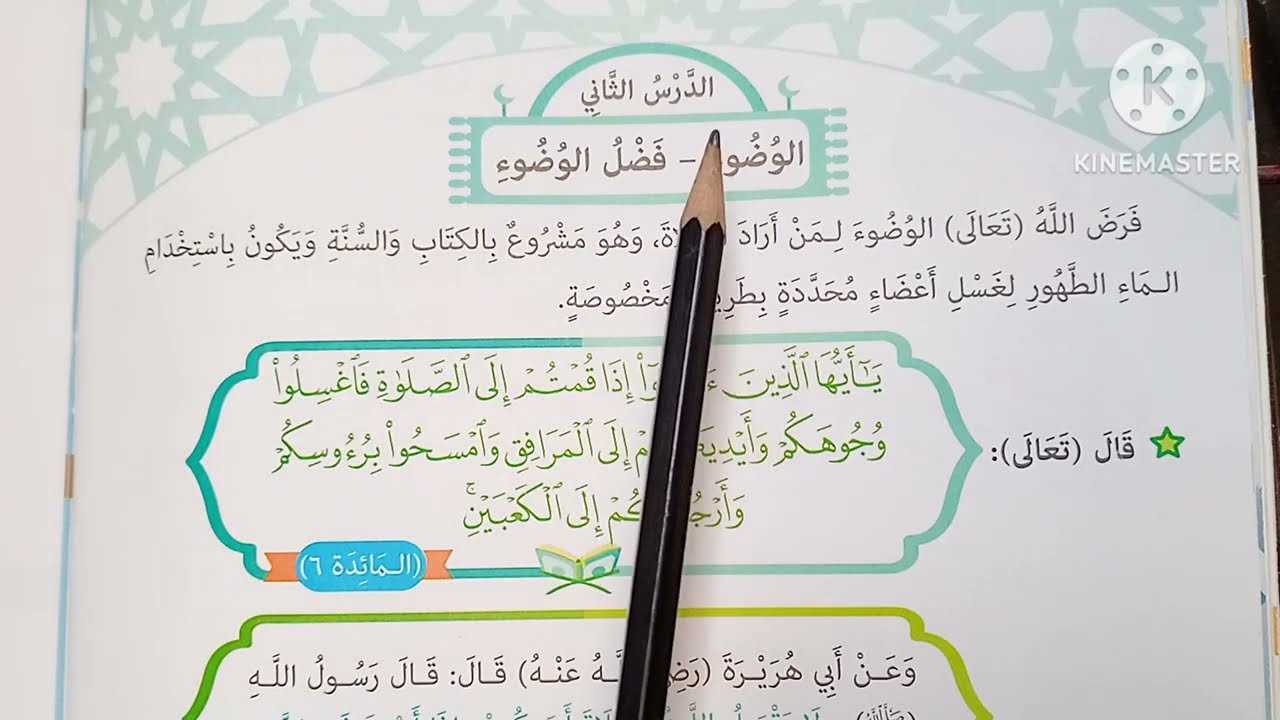 الدَّرْسُ الثَّانِي
الوُضُوءُ – فَضْلُ الوُضُوءِ
فَرَضَ اللَّهُ (تَعَالَى) الوُضُوءَ لِـمَنْ أَرَادَ وَهُوَ مَشْرُوعٌ بِالكِتَابِ وَالسُّنَّةِ وَيَكُونُ بِاسْتِخْدَامِ
الـمَاءِ الطَّهُورِ لِغَسْلِ أَعْضَاءٍ مُحَدَّدَةٍ مَخْصُوصَةٍ.
يَـٰٓأَيُّهَا ٱلَّذِينَ إِذَا قُمْتُمْ إِلَى ٱلصَّلَوٰةِ فَٱغْسِلُوا۟
وُجُوهَكُمْ إِلَى ٱلْمَرَافِقِ وَٱمْسَحُوا۟ بِرُءُوسِكُمْ
إِلَى ٱلْكَعْبَيْنِ ۚ
قَالَ (تَعَالَى):
(الـمَائِدَة ٦)
وَعَـنْ أَبِي هُرَيْـرَةَ عَنْـهُ) قَـالَ: قَـالَ رَسُـولُ اللَّـهِ
KINEMASTER